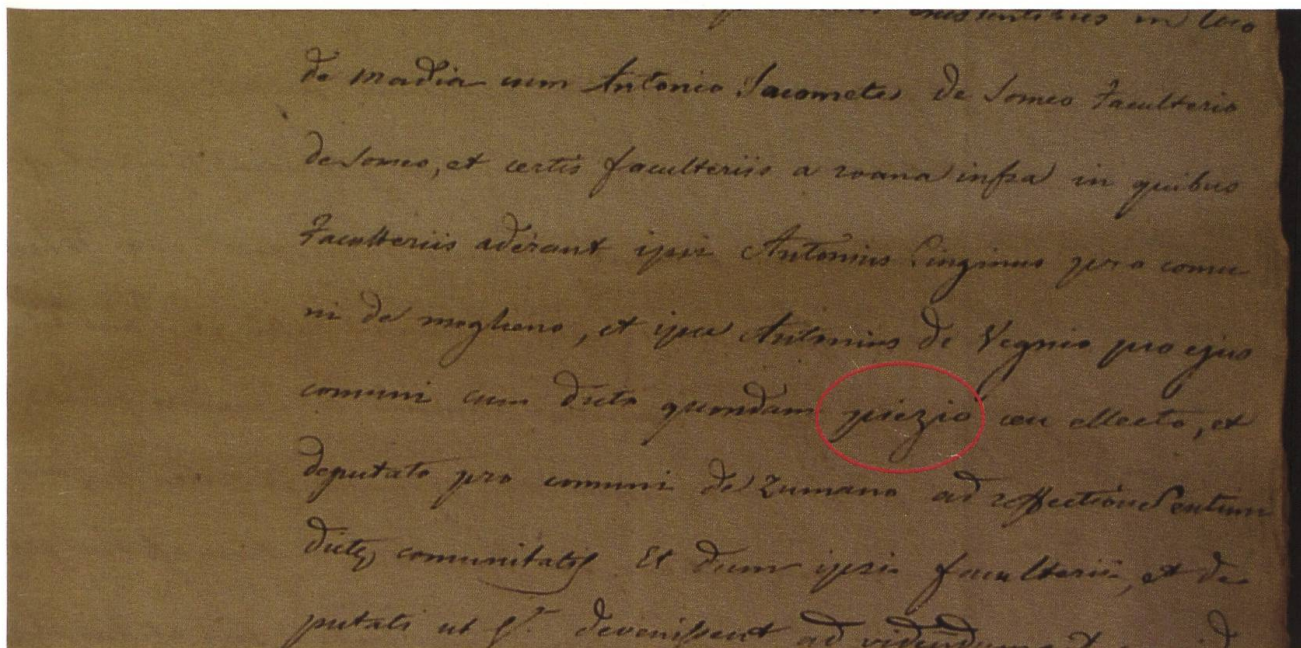 in loco
de madia cum Antonio Jacometo de Someo Faculterio
de Someo, et certis faculteriis a roana infra in quibus
Faculteriis aderant ipse Antonius Linginus pro comu
ni de mogheno, et ipse Antonius de Vegnio pro ejus
comuni cum dicto quondam piezio ceu ellecto, et
deputato pro comuni de Zumano ad reffectione
dictę comunitatis Et dum ipsi faculterii, et de
putati ut sᵃ devenissent ad videndum